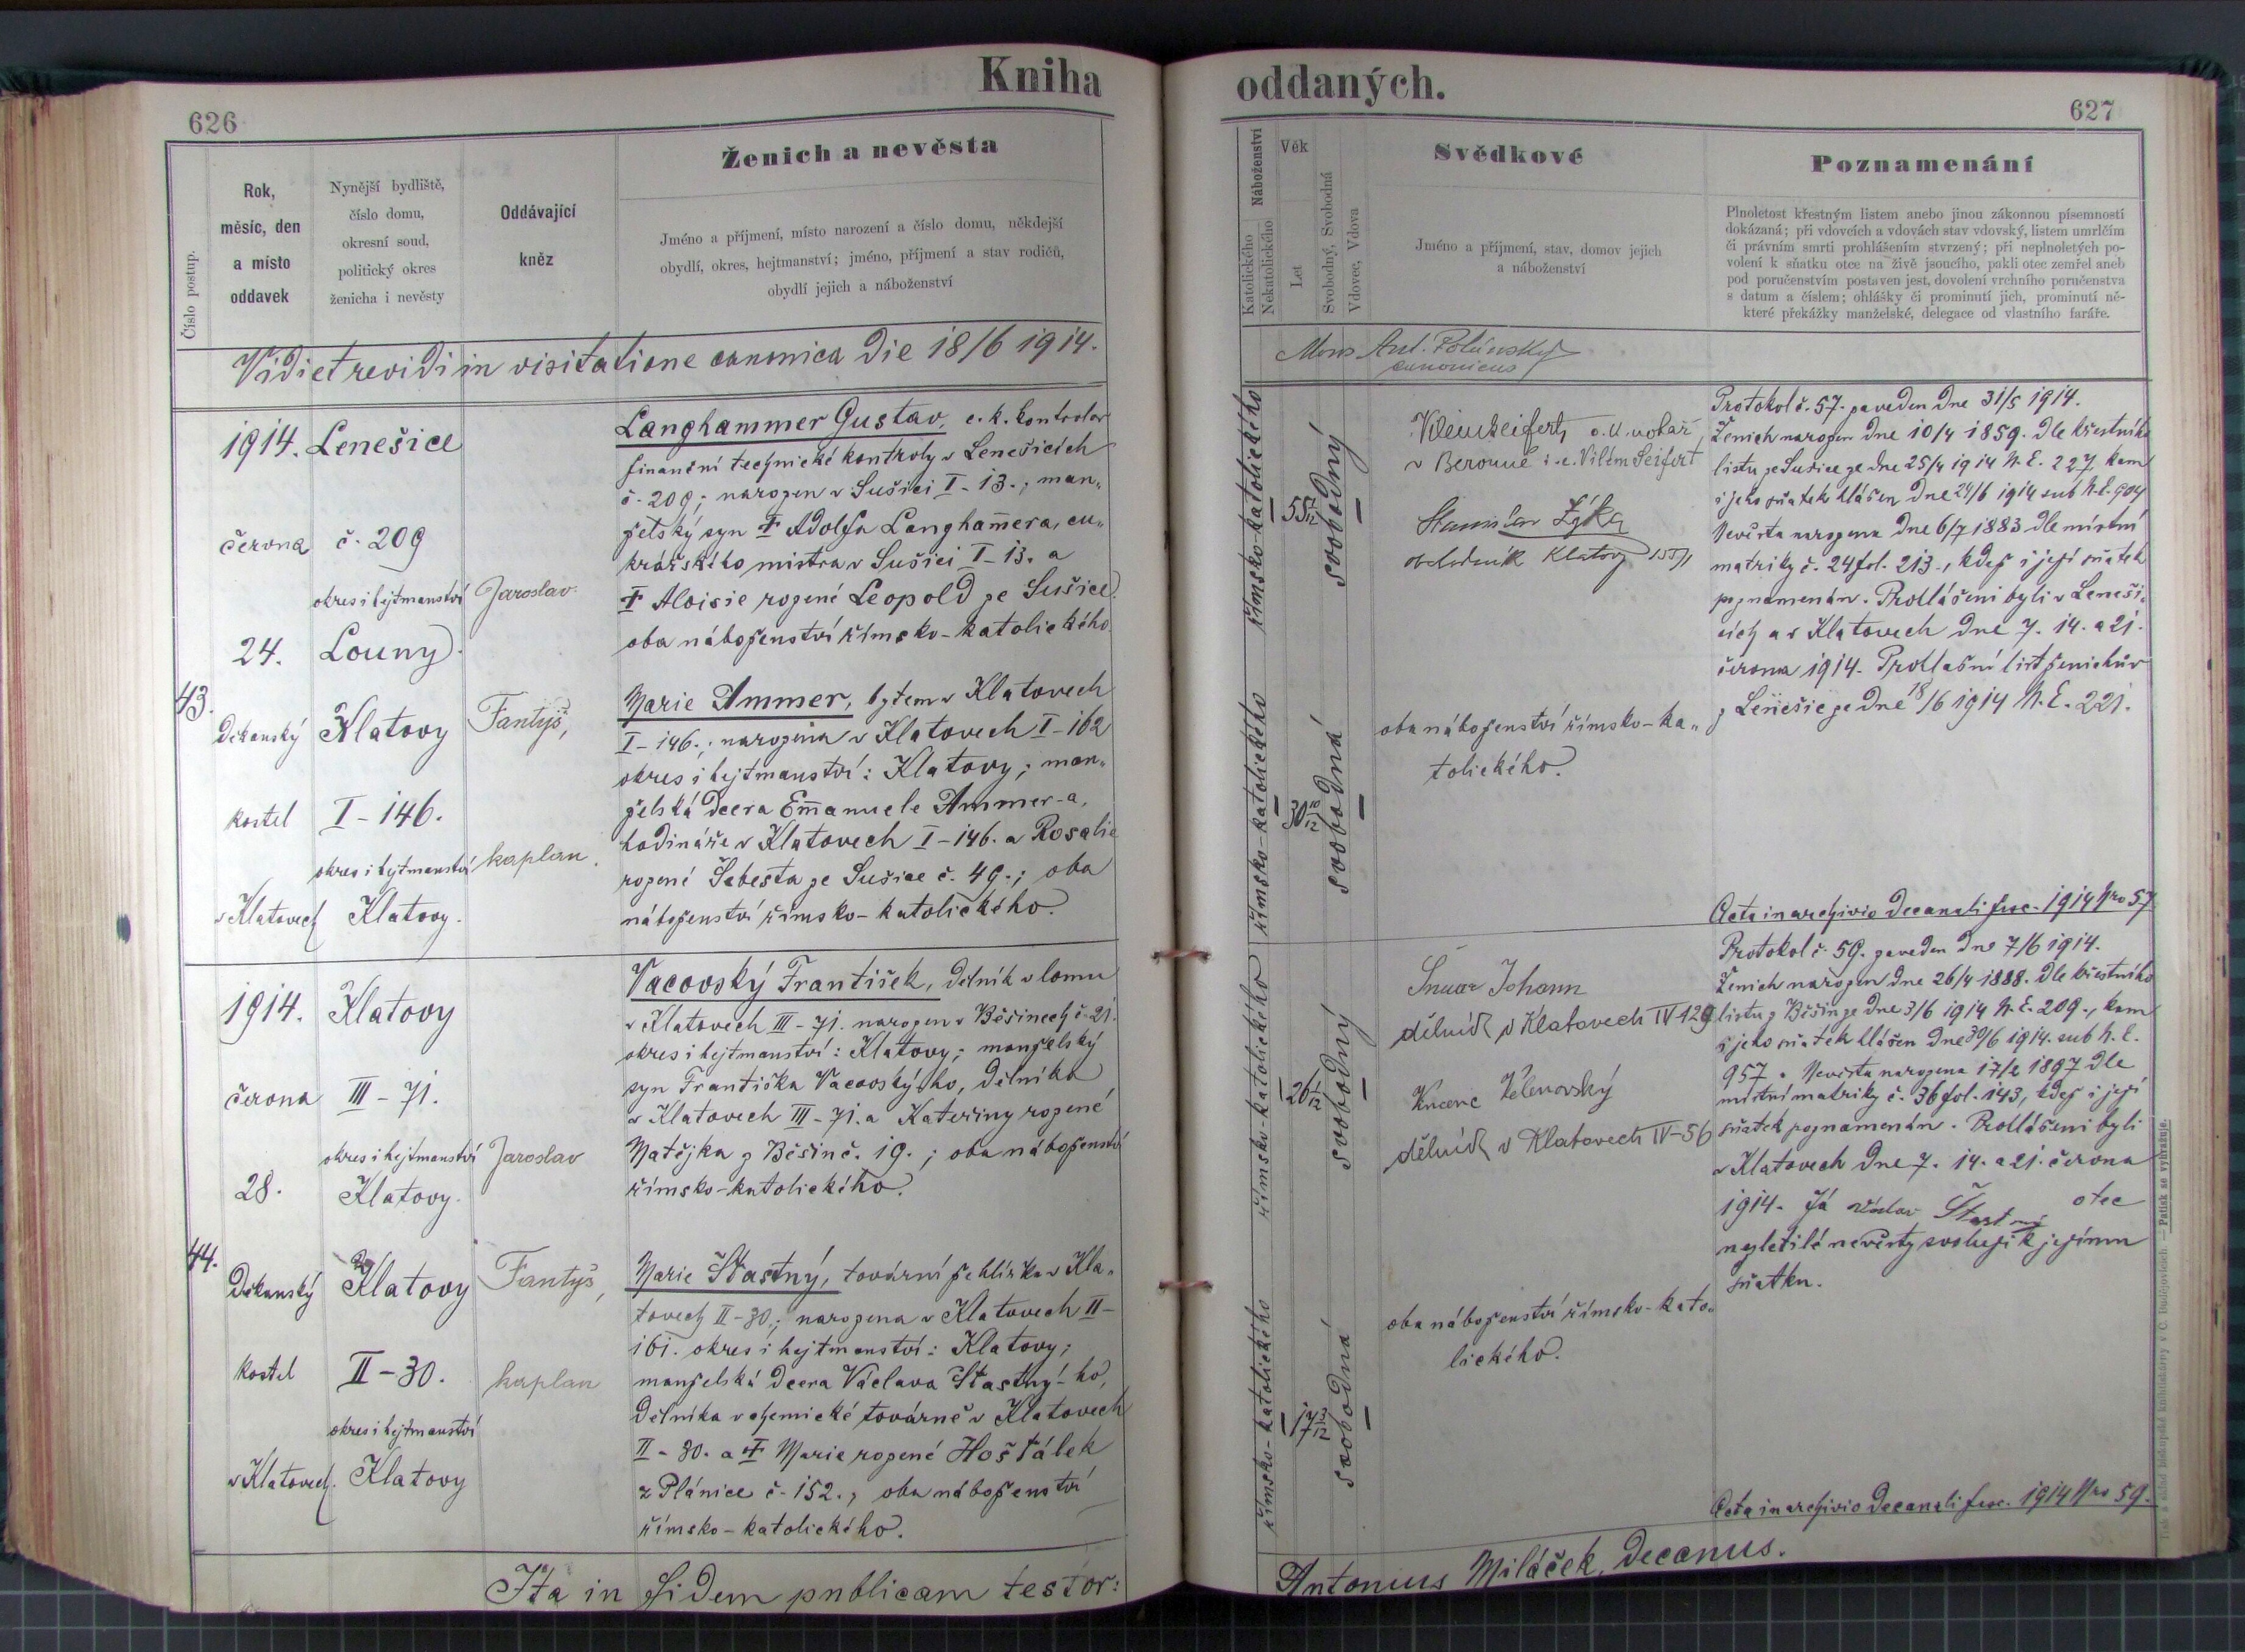 Kniha oddaných.
626
627
Číslo postup.
Rok,
měsíc, den
a místo
oddavek
Nynější bydliště,
číslo domu,
okresní soud,
politický okres
ženicha i nevěsty
Oddávající
kněz
Ženich a nevěsta
Jméno a příjmení, místo narození a číslo domu, někdejší
obydlí, okres, hejtmanství; jméno, příjmení a stav rodičů,
obydlí jejich a náboženství
Náboženství
Katolického
Nekatolického
Věk
Let
Svobodný, Svobodná
Vdovec, Vdova
Svědkové
Jméno a příjmení, stav, domov jejich
a náboženství
Poznamenání
Plnoletost křestným listem anebo jinou zákonnou písemností
dokázaná; při vdovcích a vdovách stav vdovský, listem umrlčím
či právním smrti prohlášením stvrzený; při neplnoletých po-
volení k sňatku otce na živě jsoucího, pakli otec zemřel aneb
pod poručenstvím postaven jest, dovolení vrchního poručenstva
s datum a číslem; ohlášky či prominutí jich, prominutí ně-
které překážky manželské, delegace od vlastního faráře.
Vidi et revidi in visitatione canonica die 18/6 1914.
Ant. Polánský
canonicus
43.
1914.
června
24.
Děkanský
kostel
v Klatovech
Lenešice
č. 209
okres i hejtmanství
Louny.
Klatovy
I-146.
okres i hejtmanství
Klatovy.
Jaroslav
Fantyš,
kaplan.
Langhammer Gustav, c. k. kontrolor
finanční technické kontroly v Lenešicích
č. 209; narozen v Sušici I-13.; man„
želský syn † Adolfa Langham̄era, cu„
krářského mistra v Sušici I-13. a
† Aloisie rozené Leopold ze Sušice
oba náboženství římsko-katolického.
Marie Ammer, bytem v Klatovech
I-146.; narozena v Klatovech I-162
okres i hejtmanství: Klatovy; man„
želská dcera Em̄anuele Ammer-a,
hodináře v Klatovech I-146. a Rosalie
rozené Šebesta ze Sušice č. 49.; oba
náboženství římsko-katolického.
římsko-katolického
55 2/12
svobodný
římsko-katolického
30 10/12
svobodná
c. k. notář,
v Berouně: i.e. Vilém Seifert
Stanislav Zyka
obchodník Klatovy
oba náboženství římsko-ka„
tolického.
Protokol č. 57. zaveden dne 31/5 1914.
Ženich narozen dne 10/4 1859. dle křestního
listu ze Sušice ze dne 25/4 1914 N. E. 227 kam
i jeho sňatek hlášen dne 24/6 1914 sub N. E. 904
Nevěsta narozena dne 6/7 1883 dle místní
matriky č. 24 fol. 213., kdež i její sňatek
poznamenán. Prohlášeni byli v Leneši„
cích a v Klatovech dne 7. 14. a 21.
června 1914. Prohlašní list ženichův
z Lenešic ze dne 18/6 1914 N. E. 221.
Acta in archivio decanali fasc. 1914 Nro 57
44.
1914.
června
28.
Děkanský
kostel
v Klatovech.
Klatovy
III-71.
okres i hejtmanství
Klatovy.
Klatovy
II-30.
okres i hejtmanství
Klatovy
Jaroslav
Fantyš,
kaplan
Vacovský František, dělník v lomu
v Klatovech III-71. narozen v Běšinech č. 21.
okres i hejtmanství: Klatovy; manželský
syn Františka Vacovský-ho, dělníka
v Klatovech III-71. a Kateřiny rozené
Matějka z Běšin č. 19.; oba náboženství
římsko-katolického.
Marie Šťastný, tovární žehlířka v Kla„
tovech II-30.; narozena v Klatovech II-
161. okres i hejtmanství: Klatovy;
manželská dcera Václava Šťastný-ho,
dělníka v chemické továrně v Klatovech
II-30. a † Marie rozené Hošťálek
z Plánice č. 152., oba náboženství
římsko-katolického.
římsko-katolického
26 2/12
svobodný
římsko-katolického
17
svobodná
Johann
dělník v Klatovech IV 129
Velenovský
dělník v Klatovech IV-56
oba náboženství římsko-kato„
lického.
Protokol č. 59. zaveden dne 7/6 1914.
Ženich narozen dne 26/4 1888. dle křestního
listu z Běšin ze dne 3/6 1914 N. E. 209., kam
i jeho sňatek hlášen dne 30/6 1914. sub N. E.
957. Nevěsta narozena 17/2 1897 dle
místní matriky č. 36 fol. 143, kdež i její
sňatek poznamenán. Prohlášeni byli
v Klatovech dne 7. 14. a 21. června
1914. Já Václav Šťastný otec
nezletilé nevěsty svoluji k jejímu
sňatku.
Acta in archivio decanali fasc. 1914 Nro 59.
Ita in fidem publicam testor:
Antonius Miláček, decanus.
Patisk se vyhražuje.